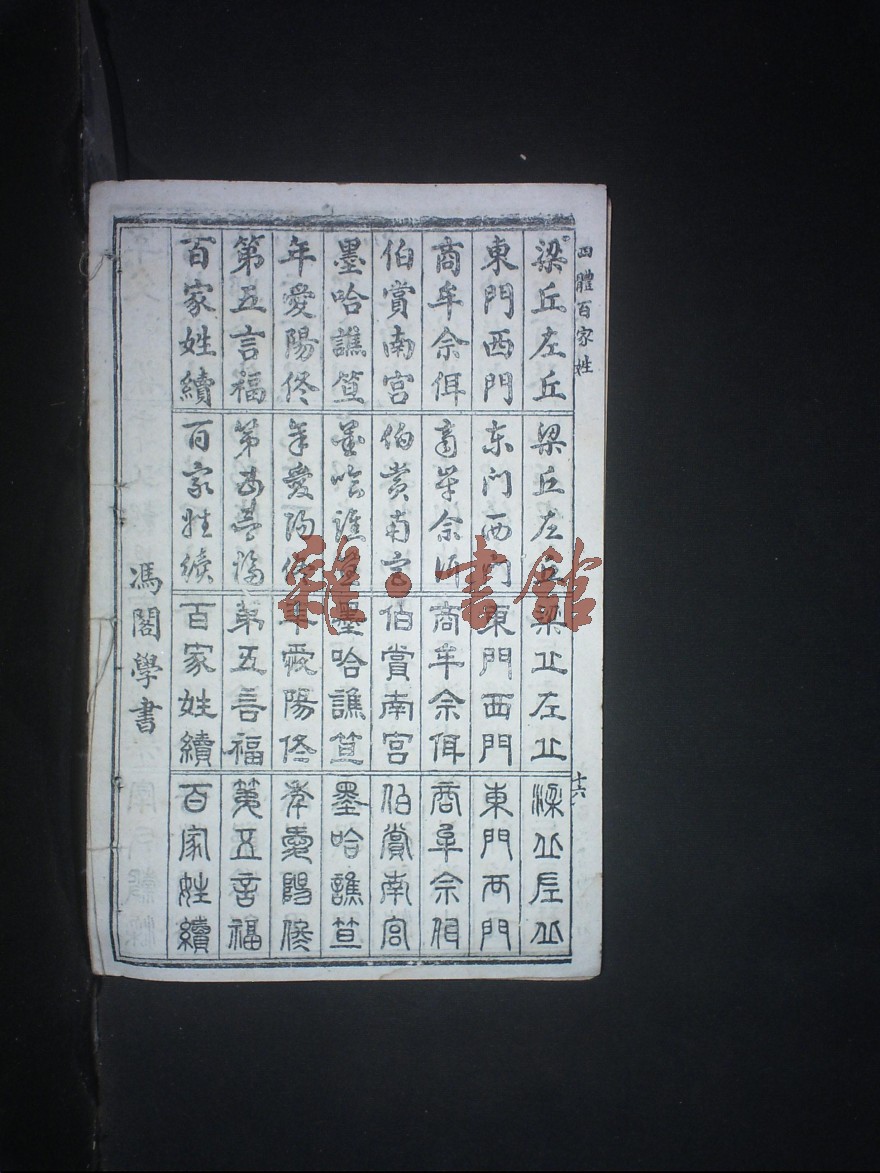 四體百家姓
十六
梁丘左丘
東門西門
商牟佘佴
伯賞南宮
墨哈譙笪
年愛陽佟
第五言福
百家姓續
梁丘左丘
东门西门
商牟佘佴
伯賞南宮
墨哈譙笪
年愛陽佟
第五言福
百家姓續
梁丘左丘
東門西門
商牟佘佴
伯賞南宮
墨哈譙笪
年愛陽佟
第五言福
百家姓續
梁丘左丘
東門西門
商牟佘佴
伯賞南宮
墨哈譙笪
年愛陽佟
第五言福
百家姓續
馮閣學書
雜·書館